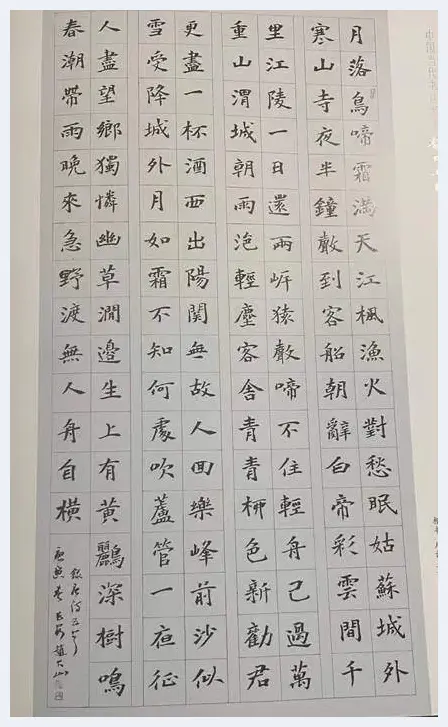 月落烏啼霜滿天江楓漁火對愁眠姑蘇城外
寒山寺夜半鐘聲到客船朝辭白帝彩雲間千
里江陵一日還兩岸猿聲啼不住輕舟已過萬
重山渭城朝雨浥輕塵客舍青青柳色新勸君
更盡一杯酒西出陽關無故人回樂峰前沙似
雪受降城外月如霜不知何處吹蘆管一夜征
人盡望鄉獨憐幽草澗邊生上有黃鸝深樹鳴
春潮帶雨晚來急野渡無人舟自橫